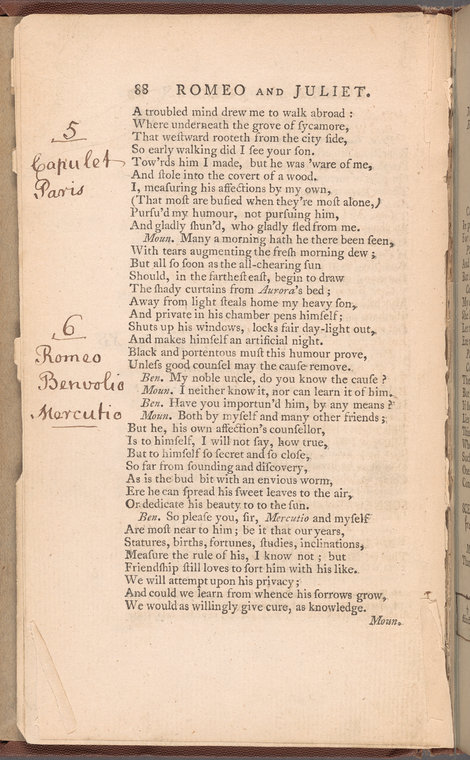 88 ROMEO AND JULIET.
A troubled mind drew me to walk abroad :
Where underneath the grove of sycamore,
That westward rooteth from the city side,
So early walking did I see your son.
Tow'rds him I made, but he was 'ware of me,
And stole into the covert of a wood.
I, measuring his affections by my own,
(That most are busied when they're most alone,)
Pursu'd my humour, not pursuing him,
And gladly shun'd, who gladly fled from me.
Moun. Many a morning hath he there been seen,
With tears augmenting the fresh morning dew ;
But all so soon as the all-chearing sun
Should, in the farthest east, begin to draw
The shady curtains from Aurora's bed ;
Away from light steals home my heavy son,
And private in his chamber pens himself ;
Shuts up his windows, locks fair day-light out,
And makes himself an artificial night.
Black and portentous must this humour prove,
Unless good counsel may the cause remove.
Ben. My noble uncle, do you know the cause ?
Moun. I neither know it, nor can learn it of him.
Ben. Have you importun'd him, by any means ?
Moun. Both by myself and many other friends ;
But he, his own affection's counsellor,
Is to himself, I will not say, how true,
But to himself so secret and so close,
So far from sounding and discovery,
As is the bud bit with an envious worm,
Ere he can spread his sweet leaves to the air,
Or dedicate his beauty to to the sun.
Ben. So please you, sir, Mercutio and myself
Are most near to him ; be it that our years,
Statures, births, fortunes, studies, inclinations,
Measure the rule of his, I know not ; but
Friendship still loves to sort him with his like.
We will attempt upon his privacy ;
And could we learn from whence his sorrows grow,
We would as willingly give cure, as knowledge.
Moun.
5
Capulet
Paris
6
Romeo
Benvolio
Mercutio